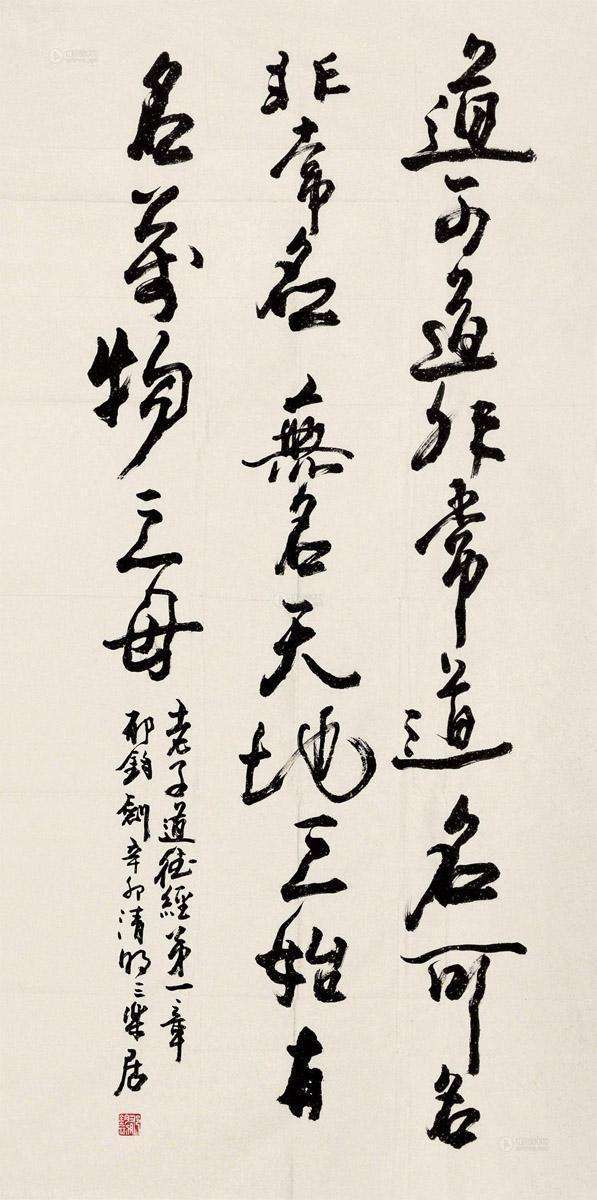 道可道非常道名可名
非常名無名天地之始有
名萬物之母
老子道德經第一章
邢鈞劍辛卯清明三樂居